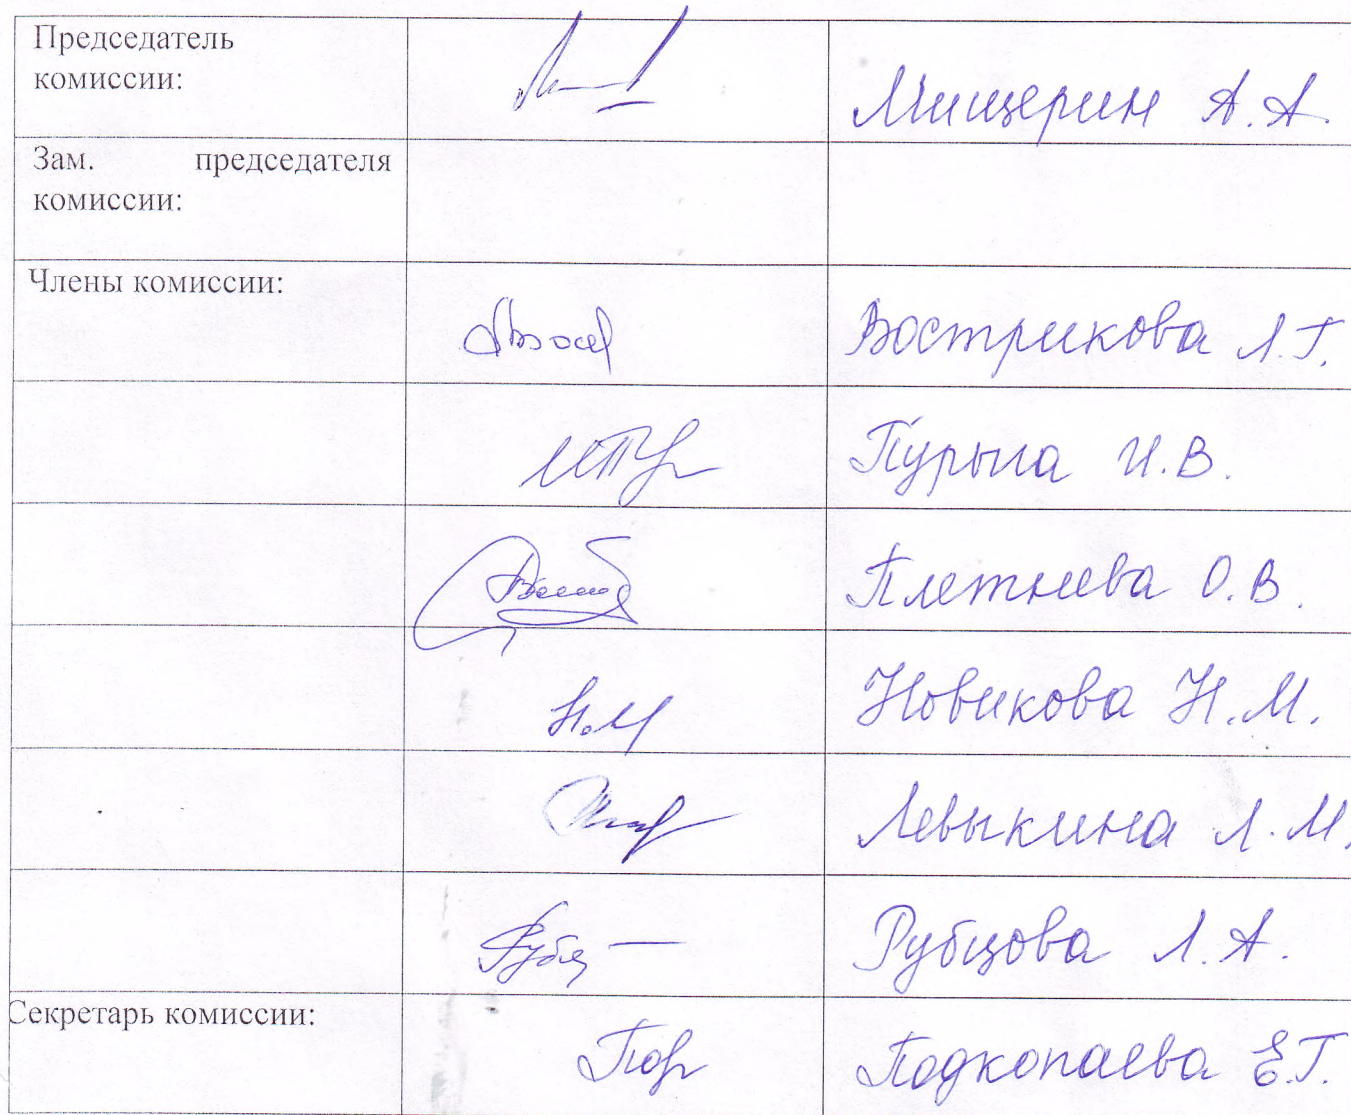 Председатель
комиссии:
Мищерин А.А.
Зам. председателя
комиссии:
Члены комиссии:
Вострикова Л.Г.
Пурыга И.В.
Плетнева О.В.
Новикова Н.М.
Левыкина Л.М.
Рубцова Л.А.
Секретарь комиссии:
Подкопаева Е.Г.